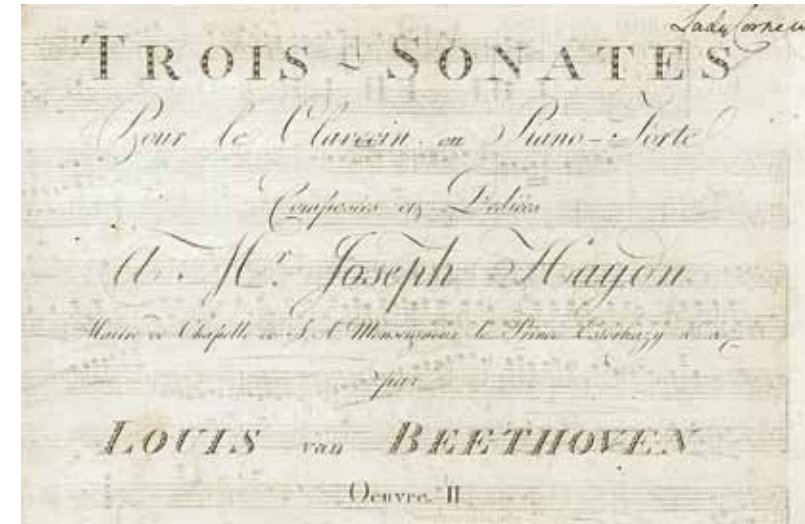 Lady
TROIS SONATES
Pour le Clavecin ou Piano-Forte
Composées et Dediées
A Mr. Joseph Haydn
Maitre de Chapelle de S. A. Monseigneur le Prince Esterhazy &c &c
par
LOUIS van BEETHOVEN
Oeuvre II